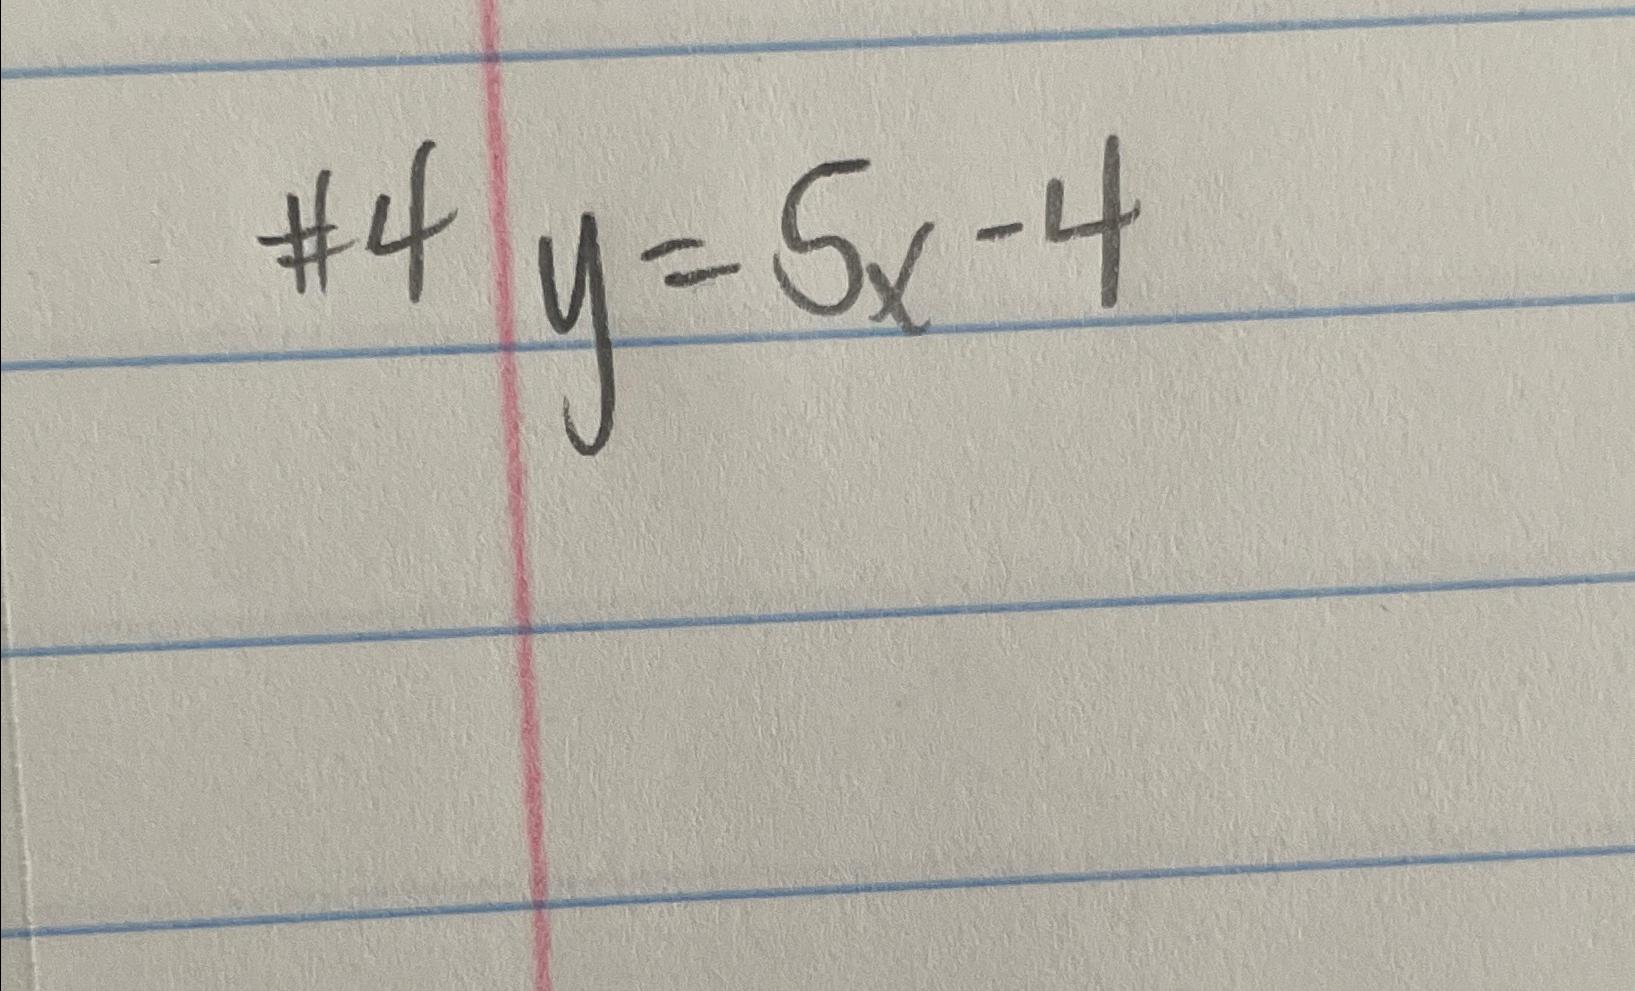 #4 y = 5x - 4